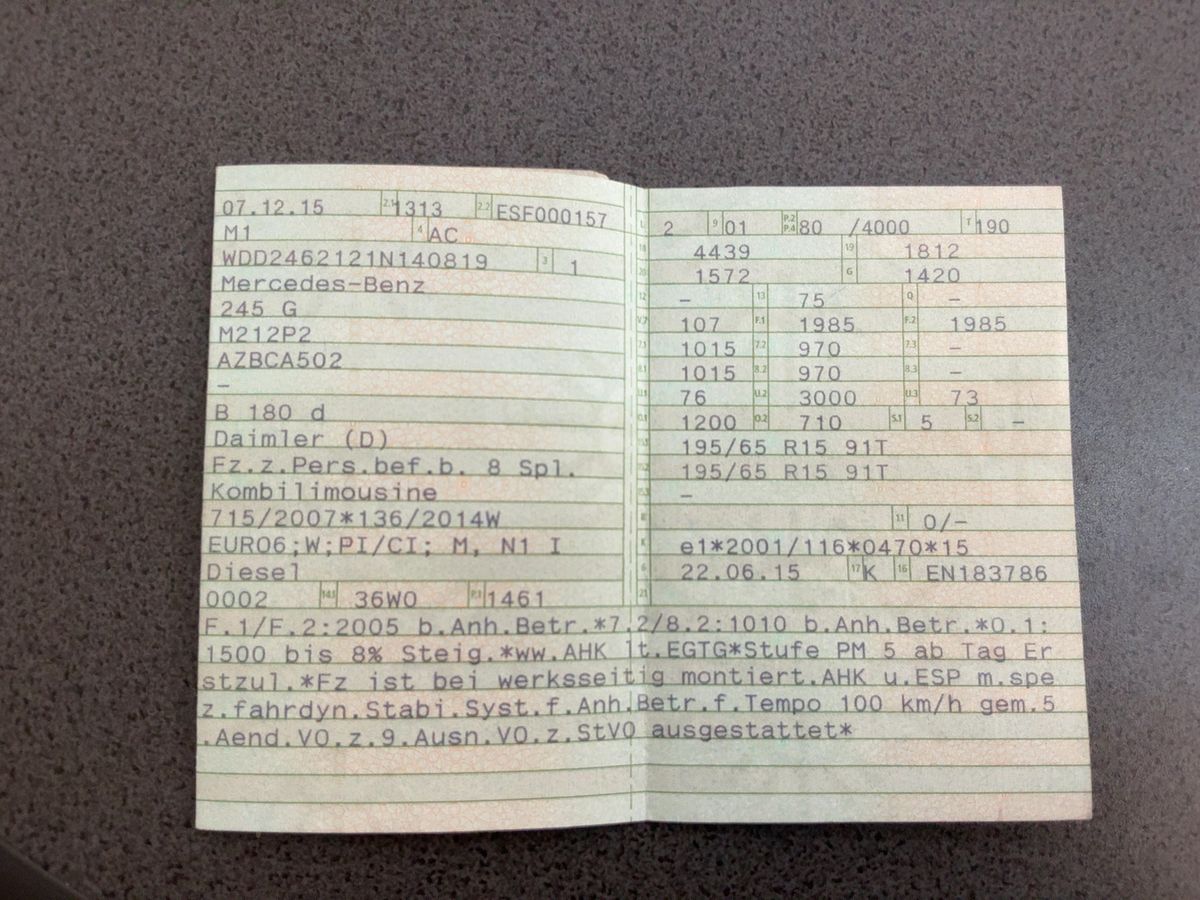 07.12.15 2.1 1313 2.2 ESF000157
M1 4 AC
WDD2462121N140819 3 1
Mercedes-Benz
245 G
M212P2
AZBCA502
–
B 180 d
Daimler (D)
Fz.z.Pers.bef.b. 8 Spl.
Kombilimousine
715/2007*136/2014W
EURO6;W;PI/CI; M, N1 I
Diesel
0002 14.1 36W0 P.1 1461
2 9 01 P.2 P.4 80 /4000 T 190
18 4439 19 1812
20 1572 G 1420
12 – 13 75 Q –
V.7 107 F.1 1985 F.2 1985
7.1 1015 7.2 970 7.3 –
8.1 1015 8.2 970 8.3 –
U.1 76 U.2 3000 U.3 73
O.1 1200 O.2 710 S.1 5 S.2 –
195/65 R15 91T
195/65 R15 91T
–
11 0/–
K e1*2001/116*0470*15
6 22.06.15 17 K 16 EN183786
21
F.1/F.2:2005 b.Anh.Betr.*7.2/8.2:1010 b.Anh.Betr.*O.1:
1500 bis 8% Steig.*ww.AHK lt.EGTG*Stufe PM 5 ab Tag Er
stzul.*Fz ist bei werksseitig montiert.AHK u.ESP m.spe
z.fahrdyn.Stabi.Syst.f.Anh.Betr.f.Tempo 100 km/h gem.5
.Aend.VO.z.9.Ausn.VO.z.StVO ausgestattet*